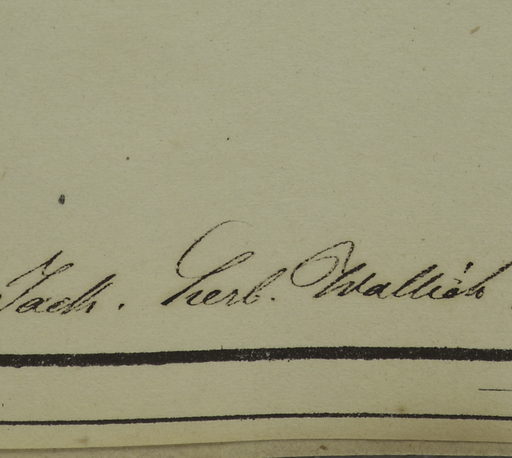 Jack. herb. Wallich